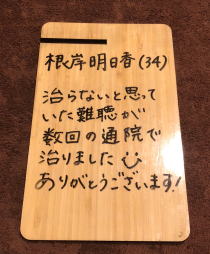 根岸明日香(34)
治らないと思って
いた難聴が
数回の通院で
治りました
ありがとうございます!